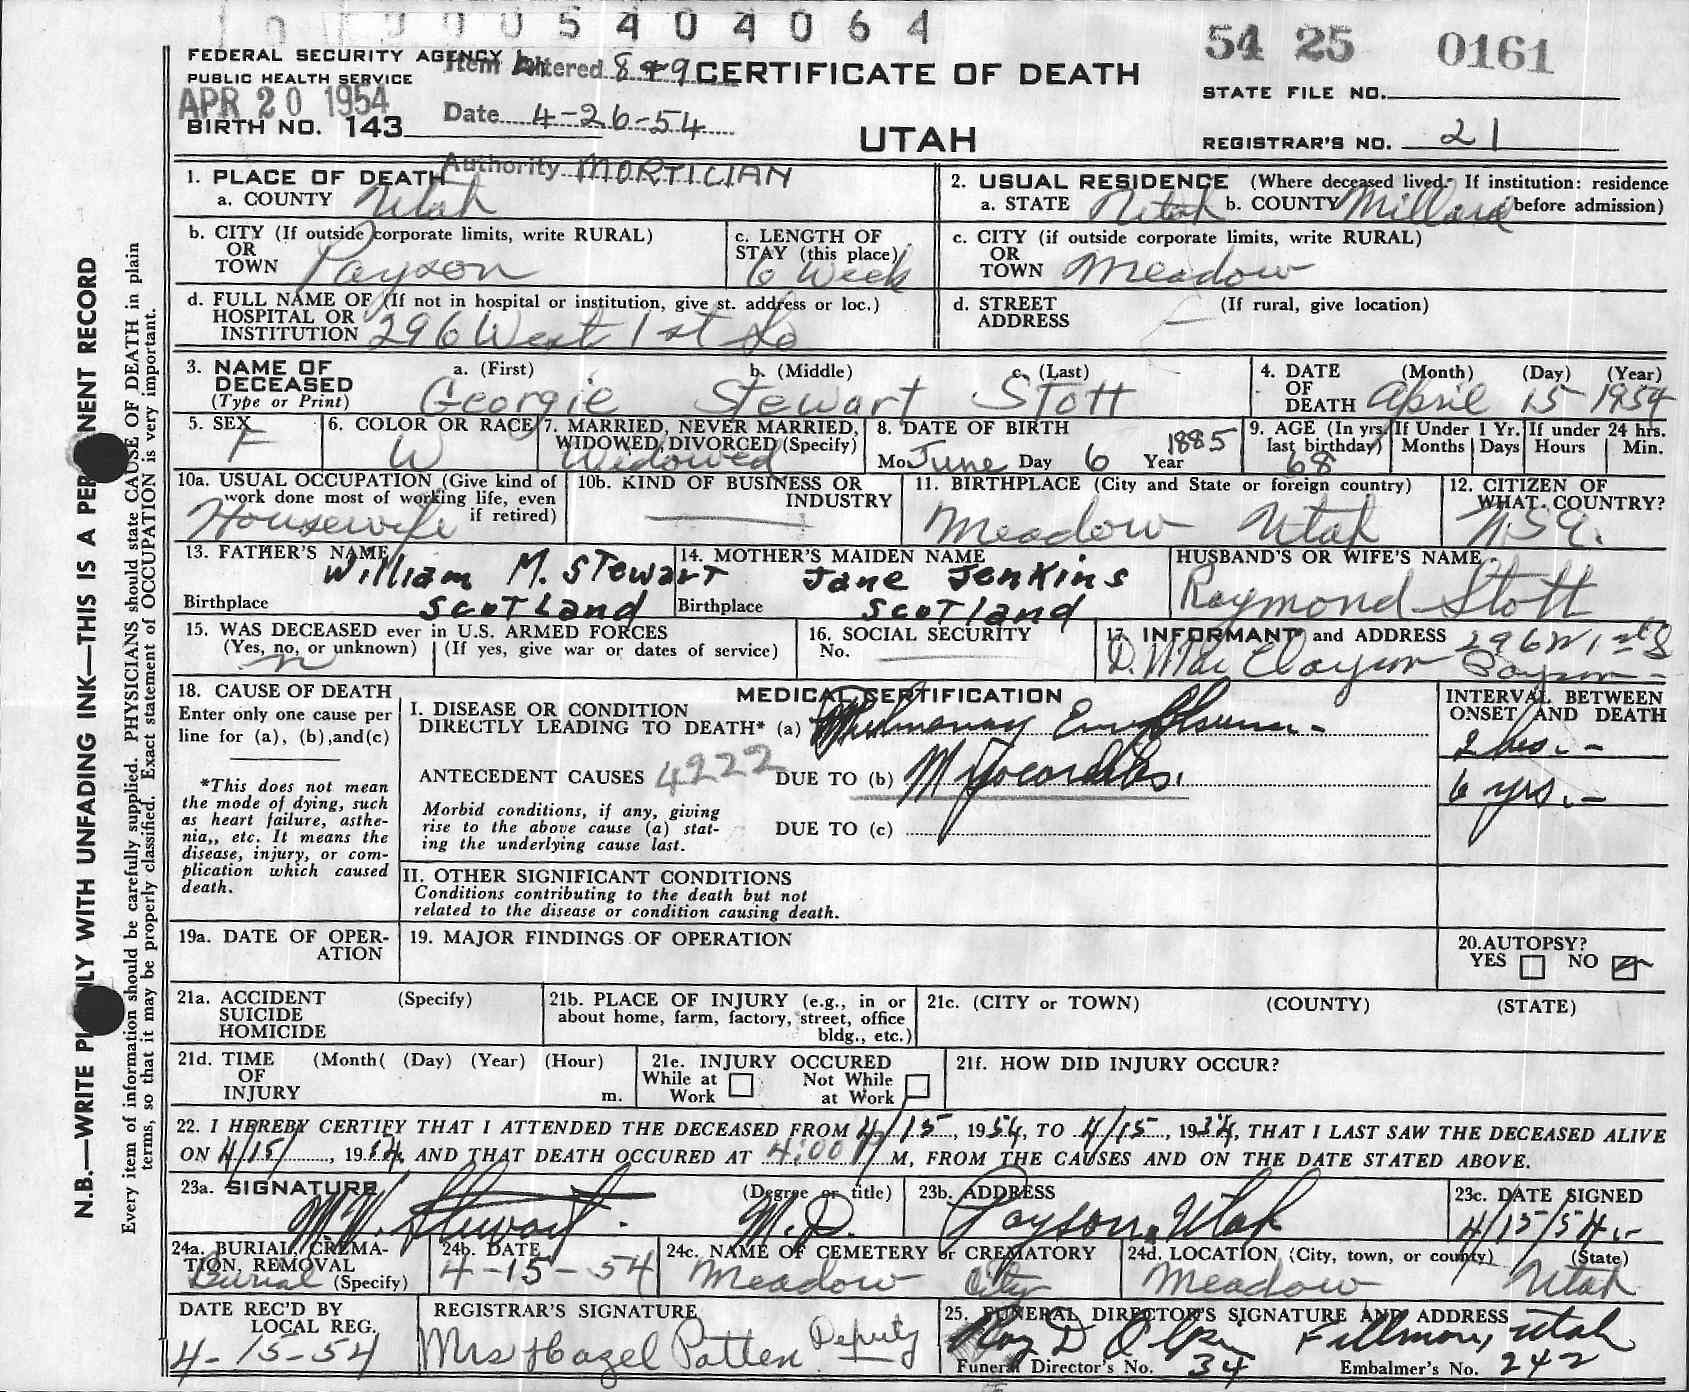 0 0 0 5 4 0 4 0 6 4
54 25 0161
FEDERAL SECURITY AGENCY
PUBLIC HEALTH SERVICE
Item Entered 8 + 9
CERTIFICATE OF DEATH
STATE FILE NO.
APR 20 1954
BIRTH NO. 143
Date 4-26-54
UTAH
REGISTRAR'S NO. 21
Authority MORTICIAN
1. PLACE OF DEATH
a. COUNTY Utah
2. USUAL RESIDENCE (Where deceased lived. If institution: residence
a. STATE Utah b. COUNTY Millard before admission)
b. CITY (If outside corporate limits, write RURAL)
OR
TOWN Payson
c. LENGTH OF
STAY (this place)
6 Week
c. CITY (if outside corporate limits, write RURAL)
OR
TOWN Meadow
d. FULL NAME OF (If not in hospital or institution, give st. address or loc.)
HOSPITAL OR
INSTITUTION 296 West 1st So
d. STREET (If rural, give location)
ADDRESS
3. NAME OF a. (First) b. (Middle) c. (Last)
DECEASED
(Type or Print) Georgie Stewart Stott
4. DATE (Month) (Day) (Year)
OF
DEATH April 15 1954
5. SEX
F
6. COLOR OR RACE
W
7. MARRIED, NEVER MARRIED,
WIDOWED, DIVORCED (Specify)
Widowed
8. DATE OF BIRTH
Mo June Day 6 Year 1885
9. AGE (In yrs.
last birthday)
68
If Under 1 Yr.
Months Days
If under 24 hrs.
Hours Min.
10a. USUAL OCCUPATION (Give kind of
work done most of working life, even
if retired)
Housewife
10b. KIND OF BUSINESS OR
INDUSTRY
11. BIRTHPLACE (City and State or foreign country)
Meadow Utah
12. CITIZEN OF
WHAT COUNTRY?
U.S.A.
13. FATHER'S NAME
William M. Stewart
Birthplace Scotland
14. MOTHER'S MAIDEN NAME
Jane Jenkins
Birthplace Scotland
HUSBAND'S OR WIFE'S NAME
Raymond Stott
15. WAS DECEASED ever in U.S. ARMED FORCES
(Yes, no, or unknown) (If yes, give war or dates of service)
n
16. SOCIAL SECURITY
No.
17. INFORMANT and ADDRESS 296 W 1st S
Clayson Payson
18. CAUSE OF DEATH
Enter only one cause per
line for (a), (b), and (c)
*This does not mean
the mode of dying, such
as heart failure, asthe-
nia,, etc. It means the
disease, injury, or com-
plication which caused
death.
MEDICAL CERTIFICATION
I. DISEASE OR CONDITION
DIRECTLY LEADING TO DEATH* (a) Pulmonary
ANTECEDENT CAUSES 4222 DUE TO (b) Myocarditis.
Morbid conditions, if any, giving
rise to the above cause (a) stat-
ing the underlying cause last.
DUE TO (c)
INTERVAL BETWEEN
ONSET AND DEATH
2 hrs. -
6 yrs. -
II. OTHER SIGNIFICANT CONDITIONS
Conditions contributing to the death but not
related to the disease or condition causing death.
19a. DATE OF OPER-
ATION
19. MAJOR FINDINGS OF OPERATION
20. AUTOPSY?
YES NO
21a. ACCIDENT (Specify)
SUICIDE
HOMICIDE
21b. PLACE OF INJURY (e.g., in or
about home, farm, factory, street, office
bldg., etc.)
21c. (CITY or TOWN) (COUNTY) (STATE)
21d. TIME (Month( (Day) (Year) (Hour)
OF
INJURY m.
21e. INJURY OCCURED
While at Not While
Work at Work
21f. HOW DID INJURY OCCUR?
22. I HEREBY CERTIFY THAT I ATTENDED THE DECEASED FROM 4/15, 1954, TO 4/15, 1954, THAT I LAST SAW THE DECEASED ALIVE
ON 4/15/, 1954, AND THAT DEATH OCCURED AT 4:00 P M, FROM THE CAUSES AND ON THE DATE STATED ABOVE.
23a. SIGNATURE (Degree or title)
Stewart. M.D.
23b. ADDRESS
Payson, Utah
23c. DATE SIGNED
4/15/54.-
24a. BURIAL, CREMA-
TION, REMOVAL
Burial (Specify)
24b. DATE
4-15-54
24c. NAME OF CEMETERY or CREMATORY
Meadow City
24d. LOCATION (City, town, or county) (State)
Meadow Utah
DATE REC'D BY
LOCAL REG.
4-15-54
REGISTRAR'S SIGNATURE
Mrs Hazel Patten Deputy
25. FUNERAL DIRECTOR'S SIGNATURE AND ADDRESS
Roy D Fillmore, Utah
Funeral Director's No. 34 Embalmer's No. 242
N.B.—WRITE PLAINLY WITH UNFADING INK—THIS IS A PERMANENT RECORD
Every item of information should be carefully supplied. PHYSICIANS should state CAUSE OF DEATH in plain
terms, so that it may be properly classified. Exact statement of OCCUPATION is very important.